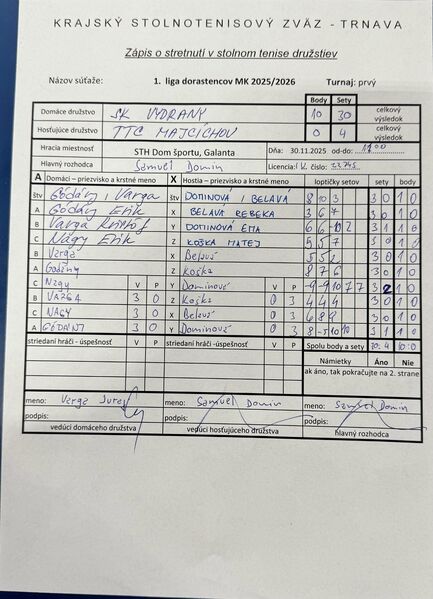 KRAJSKÝ STOLNOTENISOVÝ ZVÄZ - TRNAVA
Zápis o stretnutí v stolnom tenise družstiev
Názov súťaže: 1. liga dorastencov MK 2025/2026 Turnaj: prvý
Body Sety
Domáce družstvo SK VYDRANY 10 30 celkový výsledok
Hosťujúce družstvo TTC MAJCICHOV 0 4 celkový výsledok
Hracia miestnosť STH Dom športu, Galanta Dňa: 30.11.2025 od-do:
Hlavný rozhodca Samuel Domin Licencia/ č. číslo:
A Domáci – priezvisko a krstné meno X Hostia - priezvisko a krstné meno loptičky setov sety body
štv Gódány, Varga štv DOMINOVÁ / BELAVÁ 8 10 3 3 0 1 0
A Gódány Erik X BELAVÁ REBEKA 3 6 7 3 0 1 0
B Varga Kristóf Y DOMINOVÁ EMA 3 1 1 0
C Nagy Erik Z KOŠKA MATEJ 5 5 7 3 0 1 0
B Varga X Belavá 5 5 2 3 0 1 0
A Gódány Z Koška 8 7 6 3 0 1 0
C Nagy V P Y Dominová V P -9 -9 10 7 7 3 2 1 0
B VARGA 3 0 Z Koška 0 3 4 4 4 3 0 1 0
C NAGY 3 0 X Belavá 0 3 6 8 9 3 0 1 0
A GÓDÁNY 3 0 Y Dominová 0 3 8 -5 10 10 3 1 1 0
striedaní hráči - úspešnosť V P striedaní hráči - úspešnosť V P Spolu body a sety 30:4 10:0
Námietky Áno Nie
ak áno, tak pokračujte na 2. strane
meno: Varga Juraj meno: Samuel Domin meno: Samuel Domin
podpis: podpis: podpis:
vedúci domáceho družstva vedúci hosťujúceho družstva hlavný rozhodca